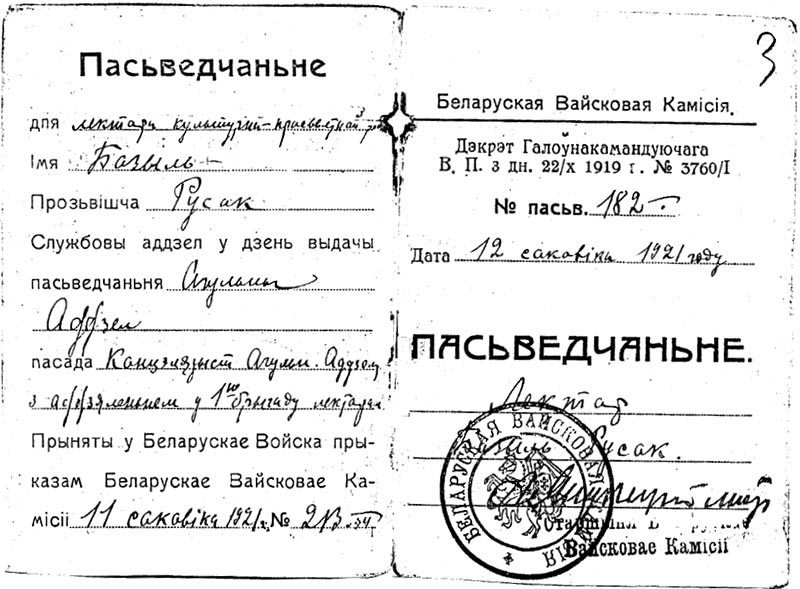 Пасьведчаньне
для лектара культурна-прасьветнай
Імя Базыль
Прозьвішча Русак
Службовы аддзел у дзень выдачы
пасьведчаньня Агульны
Аддзел
пасада Канцэлярыст Агульн. Аддзелу
з аддзяленьнем у 1ую брыгаду лектарам
Прыняты у Беларускае Войска пры-
казам Беларускае Вайсковае Ка-
місіі 11 саковіка 1921 г. №
3
Беларуская Вайсковая Камісія.
Дэкрэт Галоўнакамандуючага
В. П. з дн. 22/х 1919 г. № 3760/I
№ пасьв. 182
Дата 12 саковіка 1921 году
ПАСЬВЕДЧАНЬНЕ.
Лектар
Базыль Русак.
Старшыня
Вайсковае Камісіі
БЕЛАРУСКАЯ ВАЙСКОВАЯ КАМІСІЯ